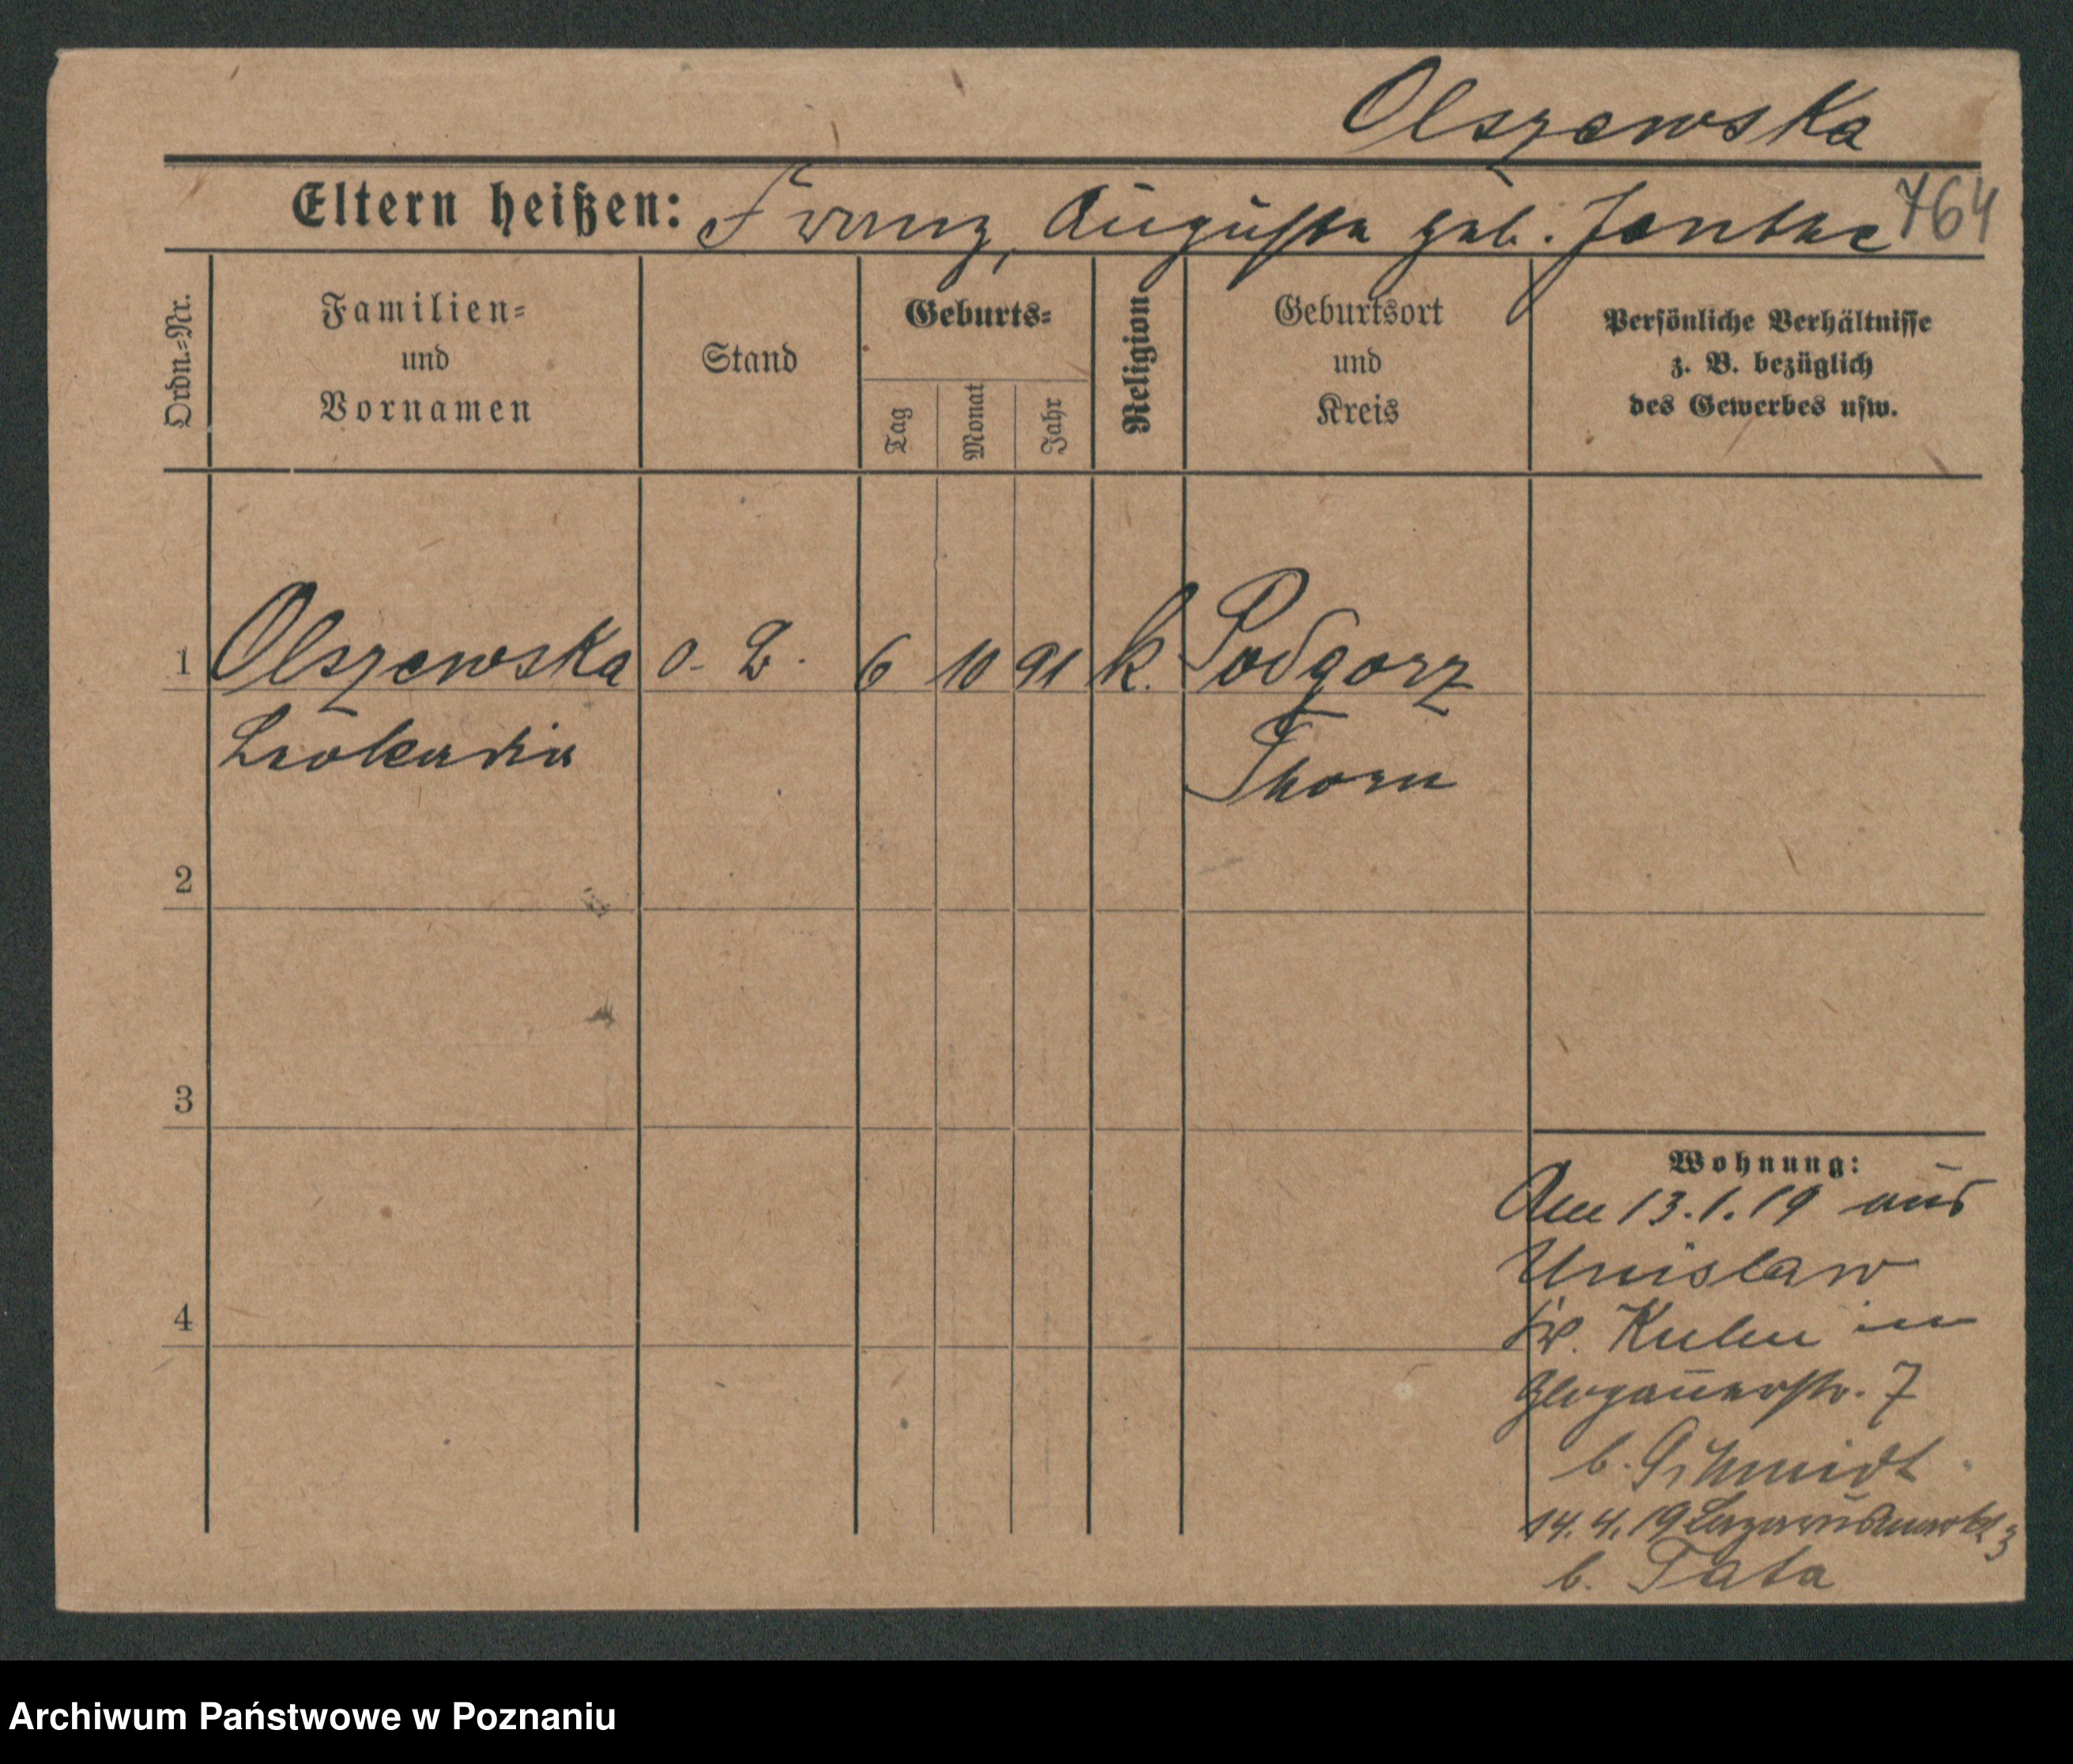 Olszewska
Eltern heißen: Franz, Auguste geb. Jantke
764
Ordn.=Nr.
Familien=
und
Vornamen
Stand
Geburts=
Tag
Monat
Jahr
Religion
Geburtsort
und
Kreis
Persönliche Verhältnisse
z. B. bezüglich
des Gewerbes usw.
1 Olszewska o. B. 6 10 91 k. Podgorz
Leokadia Thorn
2
3
4
Wohnung:
Am 13.1.19 aus
Unislaw
Kr. Kulm in
Glogauerstr. 7
b. Schmidt
14.4.19 Lazarusmarkt 3
b. Tata
Archiwum Państwowe w Poznaniu